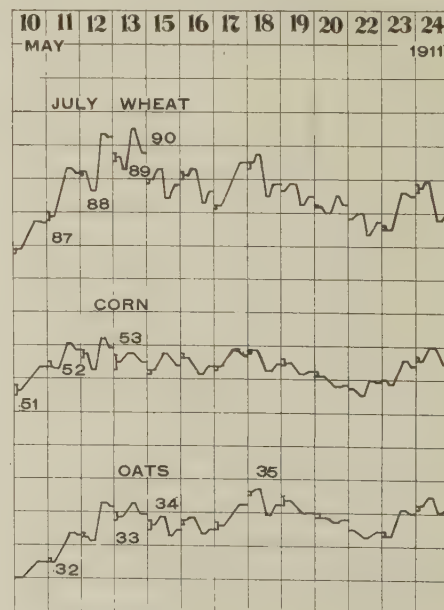 10 11 12 13 14 15 16 17 18 19 20 22 23 24
MAY 1911
JULY WHEAT
90
89
88
87
CORN
53
52
51
OATS
35
34
33
32